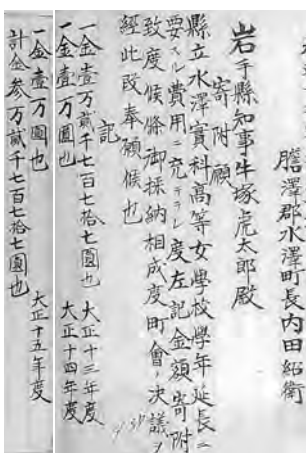 膽澤郡水澤町長内田紹衛
岩手縣知事牛塚虎太郎殿
寄附願
縣立水澤實科高等女學校學年延長ニ
要スル費用ニ充テラレ度左記金額寄附
致度候條御採納相成度町會ノ決議ヲ
經此段奉願候也
記
一金壹万貳千七百七拾七圓也 大正十三年度
一金壹万圓也 大正十四年度
一金壹万圓也 大正十五年度
計金参万貳千七百七拾七圓也